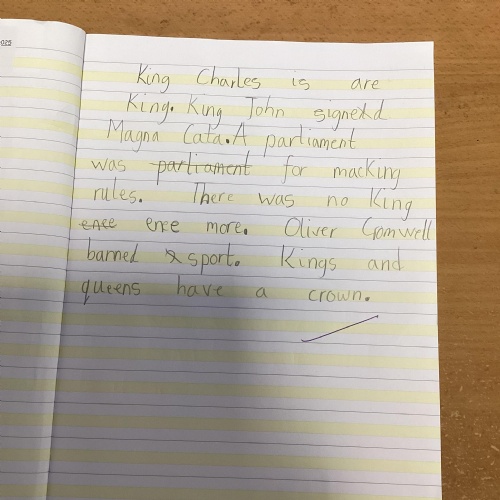 025
King Charles is are
King. King John signed
Magna Cata. A parliament
was parliament for macking
rules. There was no King
ence ence more. Oliver Cromwell
banned sport. Kings and
queens have a crown.